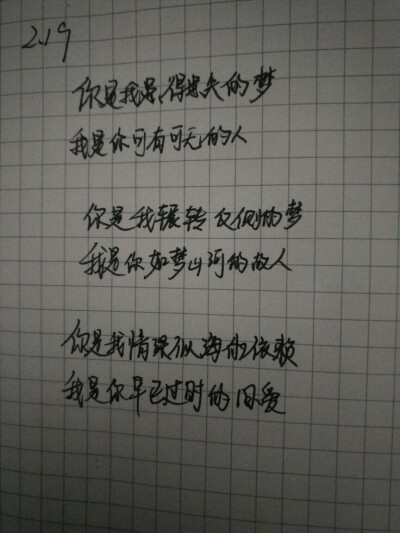 2.19
你是我患得患失的梦
我是你可有可无的人
你是我辗转反侧的梦
我是你如梦山河的故人
你是我情深似海的依赖
我是你早已过时的旧爱